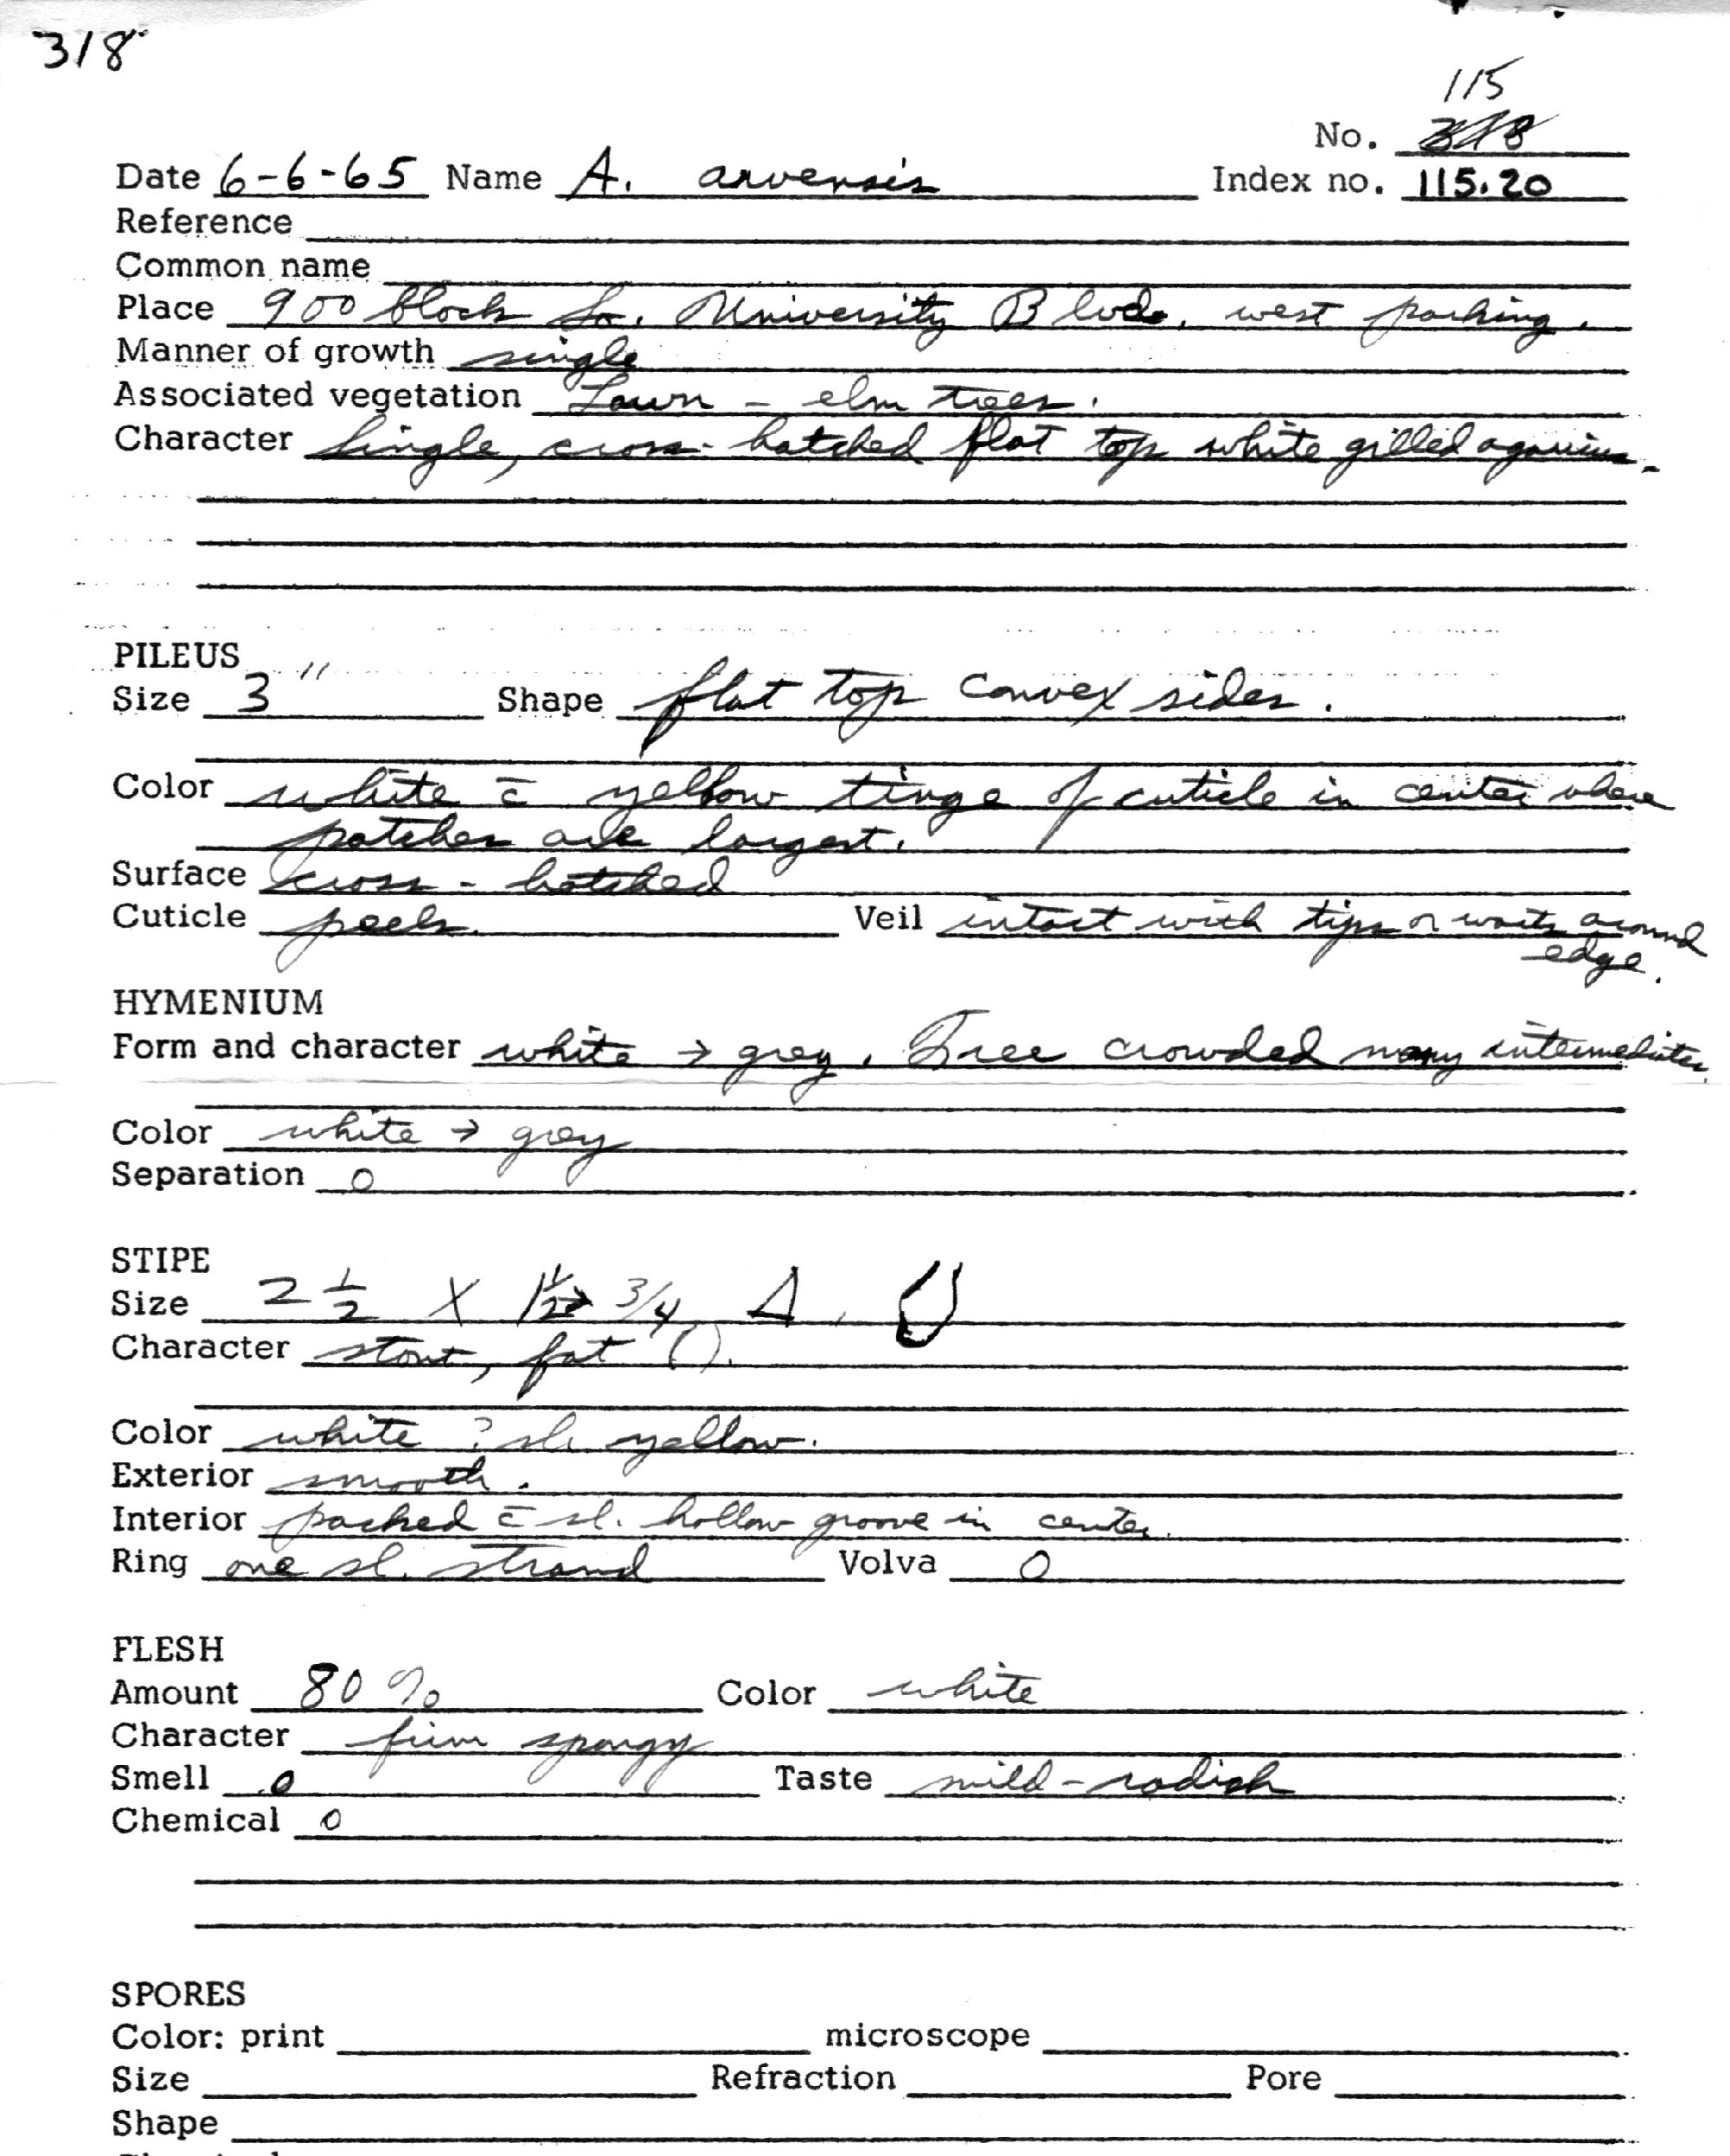 318
115
No. 318
Date 6-6-65 Name A. arvensis Index no. 115.20
Reference
Common name
Place 900 block So. University Blvd. west parking.
Manner of growth single
Associated vegetation Lawn - elm trees.
Character Single, cross-hatched flat top white gilled agaricus.
PILEUS
Size 3" Shape flat top convex sides.
Color white c̄ yellow tinge of cuticle in center where
patches are largest.
Surface cross-hatched
Cuticle peels. Veil intact with tips or warts around
edge.
HYMENIUM
Form and character white → grey. Free crowded many intermediates.
Color white → grey
Separation 0
STIPE
Size 2 1/2 X 1 1/2 → 3/4
Character stout, fat ().
Color white ? sl. yellow.
Exterior smooth.
Interior packed c̄ sl. hollow groove in center.
Ring one sl. strand Volva 0
FLESH
Amount 80% Color white
Character firm spongy
Smell 0 Taste mild - radish
Chemical 0
SPORES
Color: print microscope
Size Refraction Pore
Shape